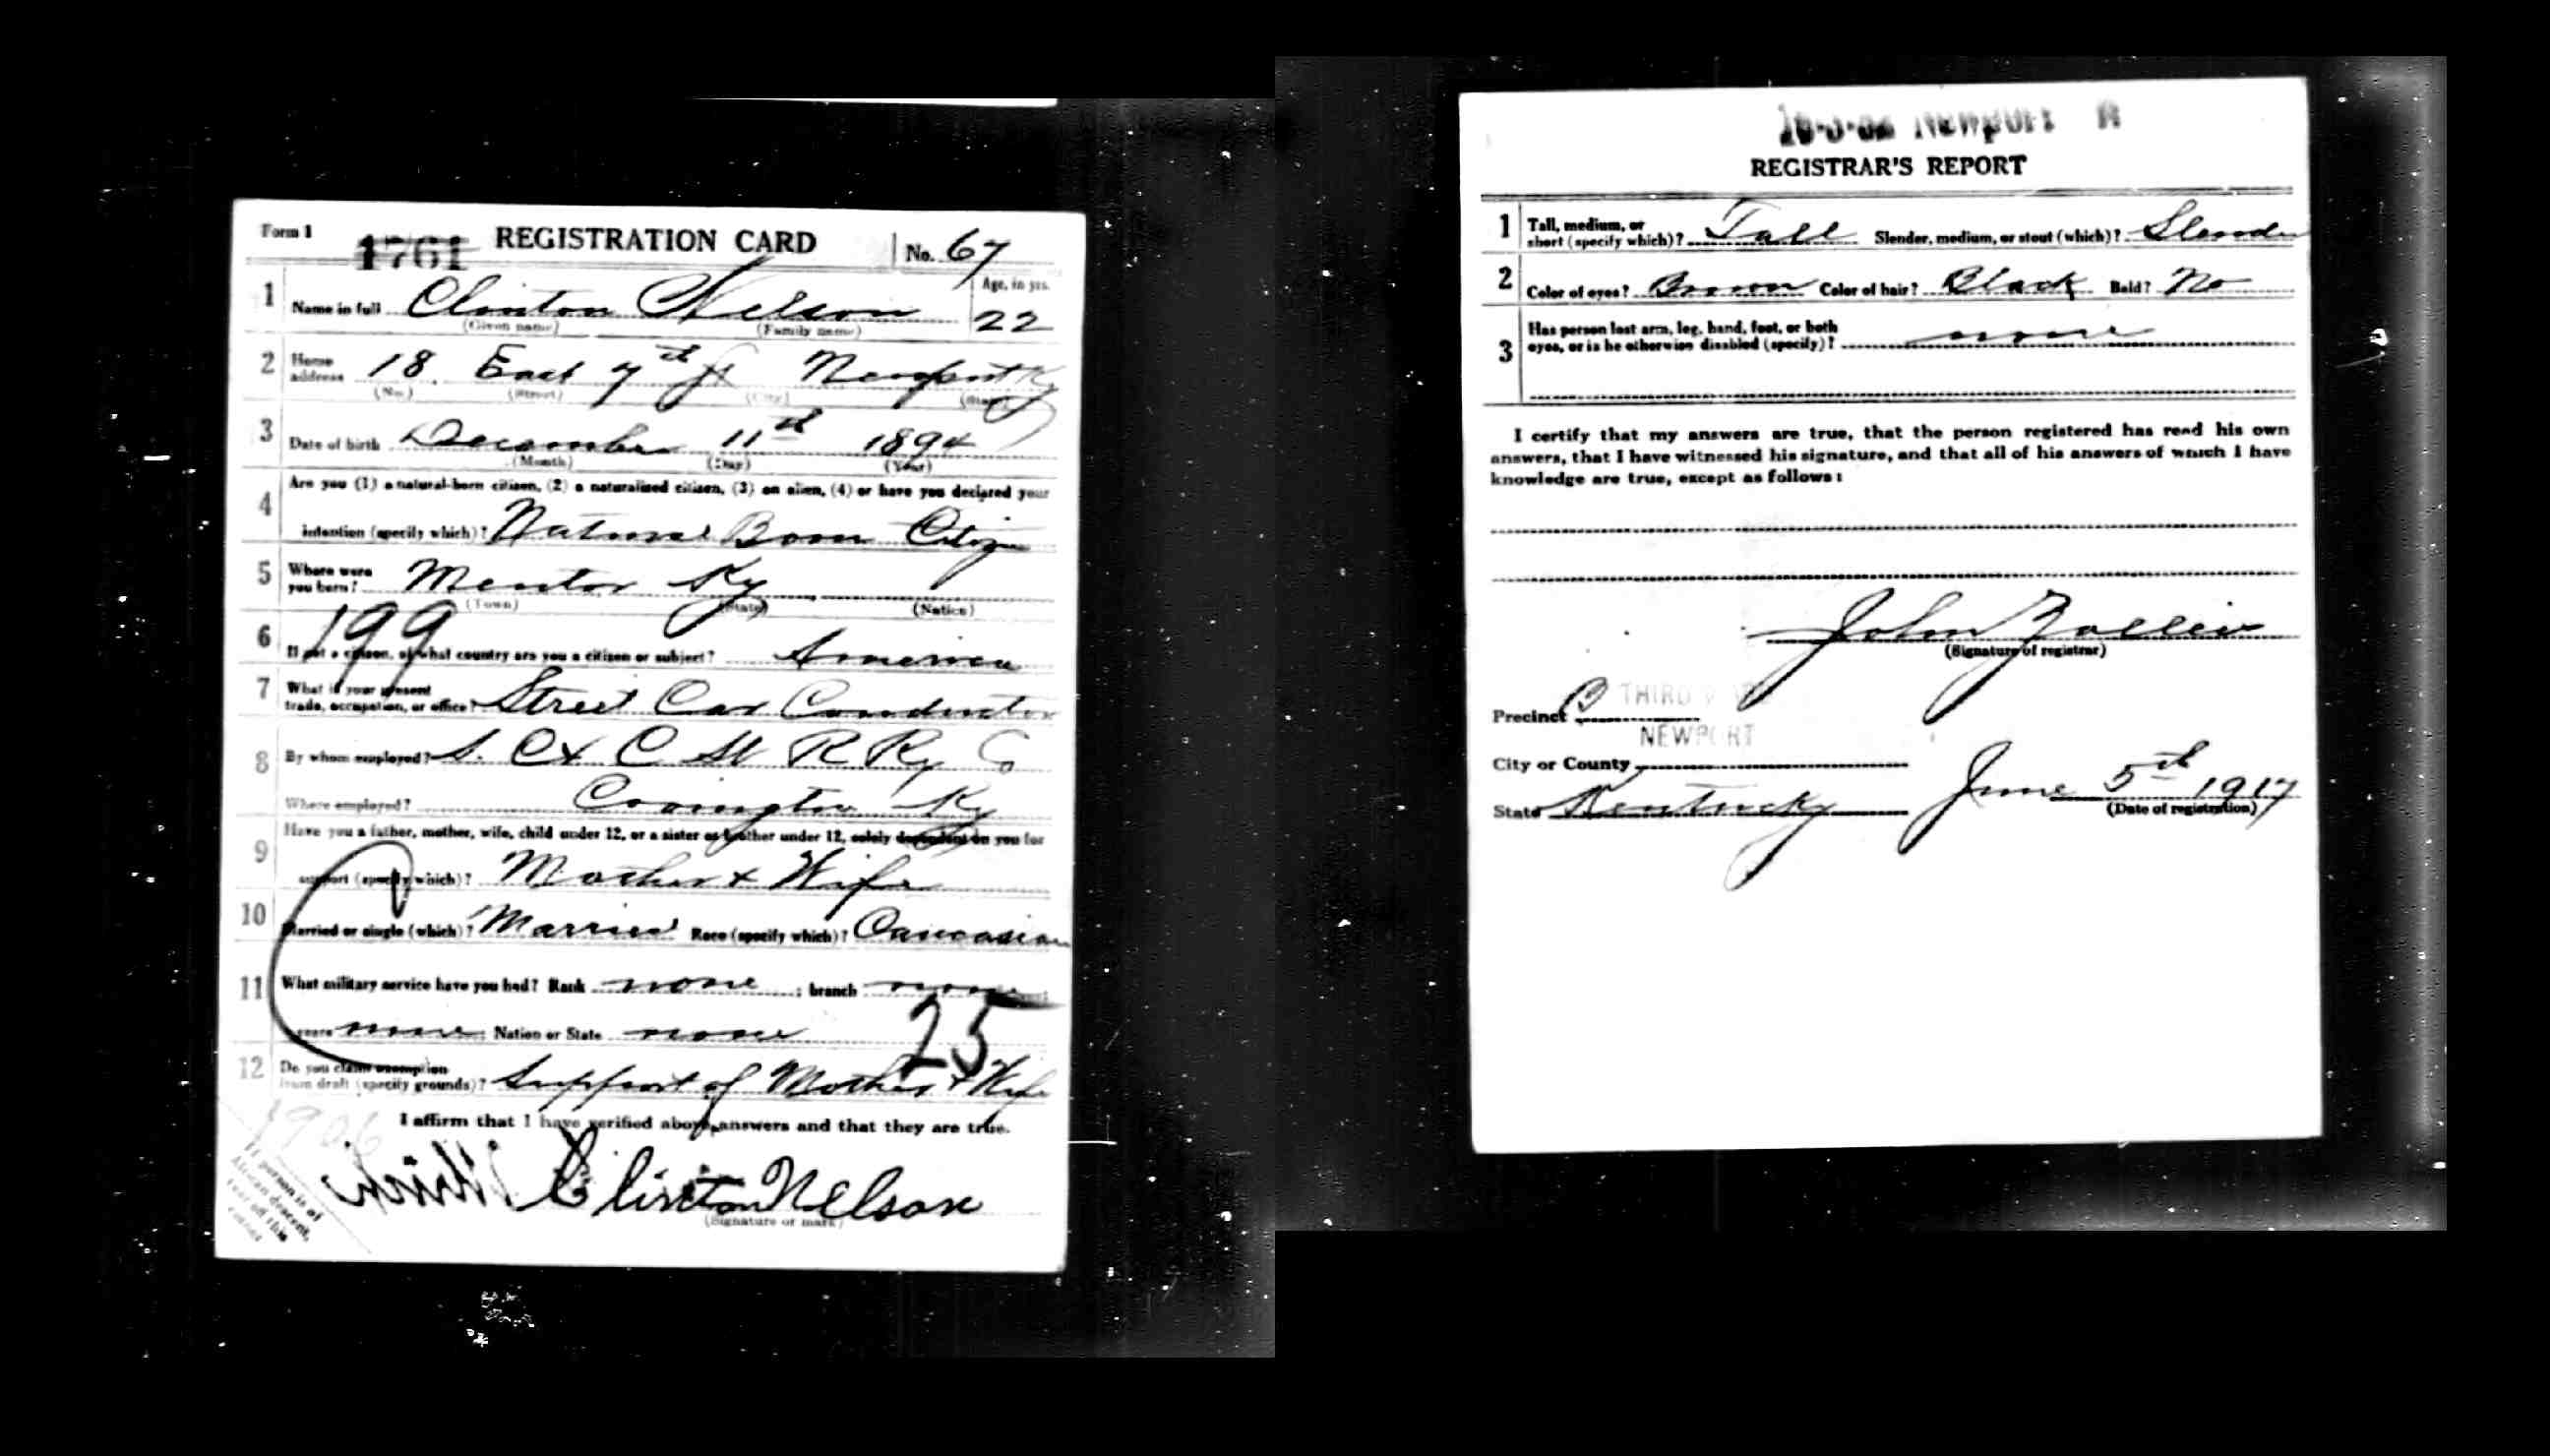 Form 1
1761 REGISTRATION CARD No. 67
1 Name in full Clinton Nelson Age, in yrs. 22
(Given name) (Family name)
2 Home address 18 East 7th St Newport Ky
(No.) (Street) (City) (State)
3 Date of birth December 11th 1894
(Month) (Day) (Year)
4 Are you (1) a natural-born citizen, (2) a naturalized citizen, (3) an alien, (4) or have you declared your
intention (specify which)? Natural Born Citizen
5 Where were you born? Mentor Ky
(Town) (State) (Nation)
199
6 If not a citizen, of what country are you a citizen or subject? America
7 What is your present trade, occupation, or office? Street Car Conductor
8 By whom employed? S. C & C St R Ry Co
Where employed? Covington Ky
9 Have you a father, mother, wife, child under 12, or a sister or brother under 12, solely dependent on you for
support (specify which)? Mother + Wife
10 Married or single (which)? Married Race (specify which)? Caucasian
11 What military service have you had? Rank none ; branch none
years none ; Nation or State none
25
12 Do you claim exemption from draft (specify grounds)? Support of Mother + Wife
I affirm that I have verified above answers and that they are true.
1906
If person is of African descent, tear off this corner
Clinton Nelson
(Signature or mark)
Newport
REGISTRAR'S REPORT
1 Tall, medium, or short (specify which)? Tall Slender, medium, or stout (which)? Slender
2 Color of eyes? Brown Color of hair? Black Bald? No
3 Has person lost arm, leg, hand, foot, or both eyes, or is he otherwise disabled (specify)? none
I certify that my answers are true, that the person registered has read his own
answers, that I have witnessed his signature, and that all of his answers of which I have
knowledge are true, except as follows:
John
(Signature of registrar)
Precinct THIRD WARD
NEWPORT
City or County
State Kentucky June 5th 1917
(Date of registration)